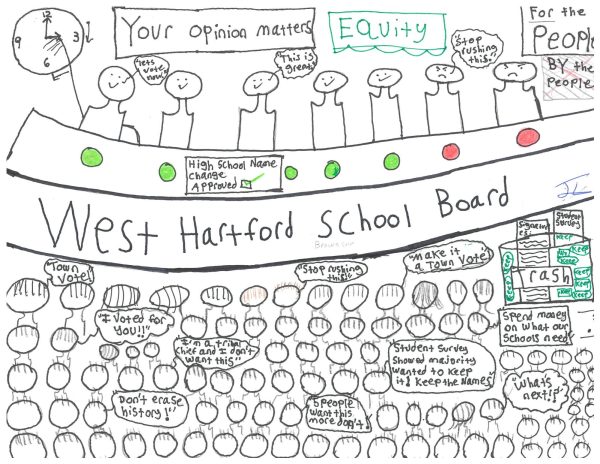 12
9
3
6
Your Opinion matters
Equity
For the
People
BY the
People
"lets
vote
now"
"This is
great"
"Stop
rushing
this"
High School Name
change
Approved
West Hartford School Board
Signatures
Student
Survey
Keep
Keep
Keep
Keep
Keep
Keep
Trash
"Town
Vote!
"Stop rushing
this!"
"make it
a Town Vote"
"I voted for
you!!"
"I'm a tribal
chef and I don't
want this"
Student Survey
Showed majority
wanted to keep
it! Keep the Names"
Spend money
on what our
Schools need!
"Don't erase
history!"
5 people
want this
more don't!
"What's
next!?"